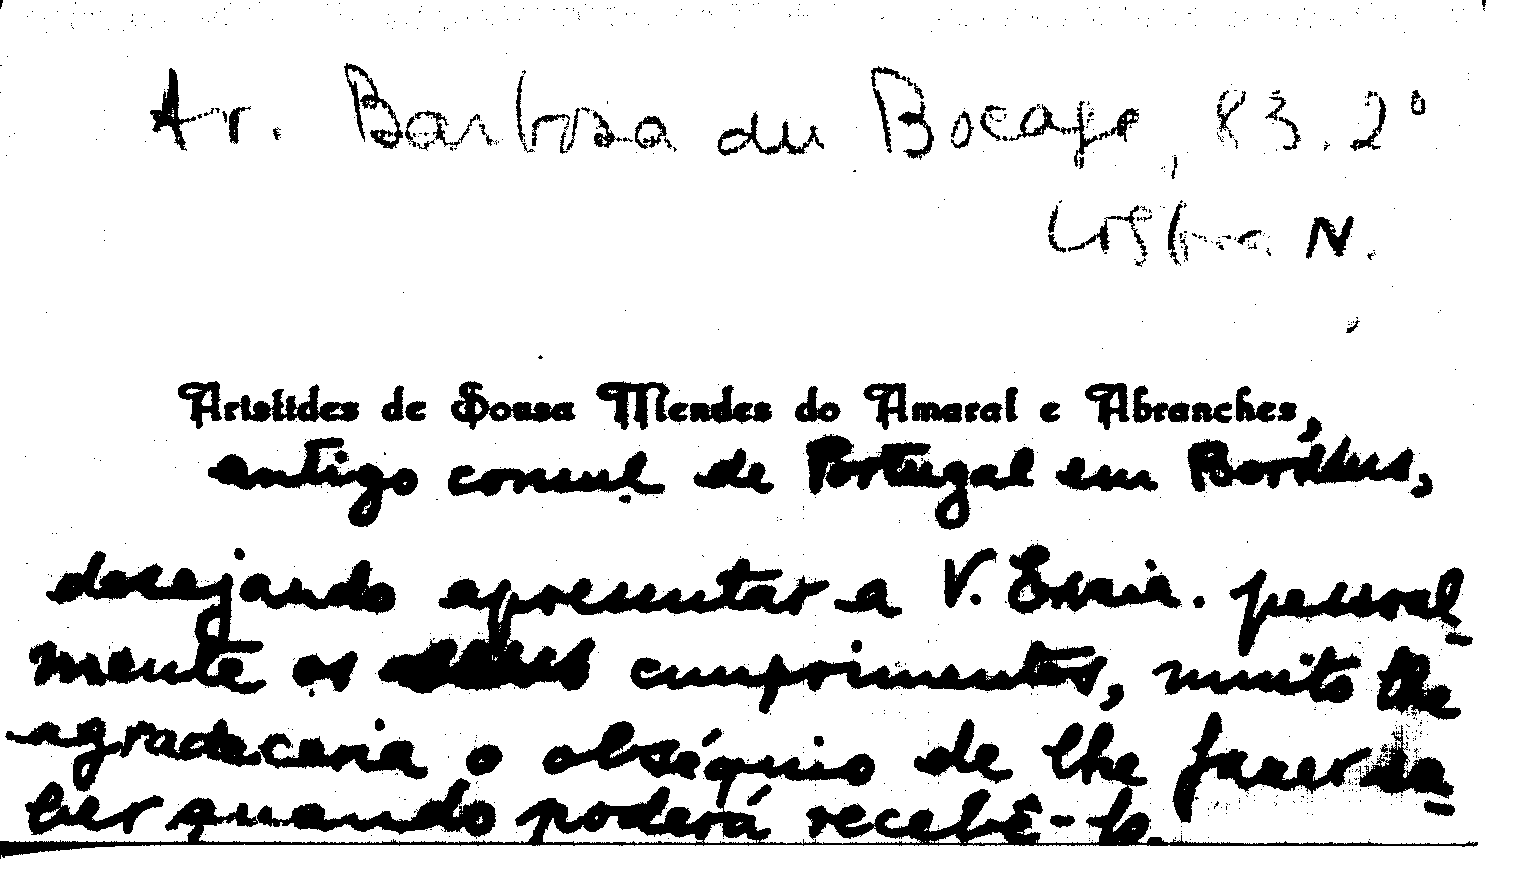 Av. Barbosa du Bocage, 83.2º
Lisboa N.
Aristides de Sousa Mendes do Amaral e Abranches,
antigo consul de Portugal em Bordeus,
desejando apresentar a V. Excia. pessoal-
mente os cumprimentos, muito lhe
agradeceria o obséquio de lhe fazer sa-
ber quando poderá recebê-lo.